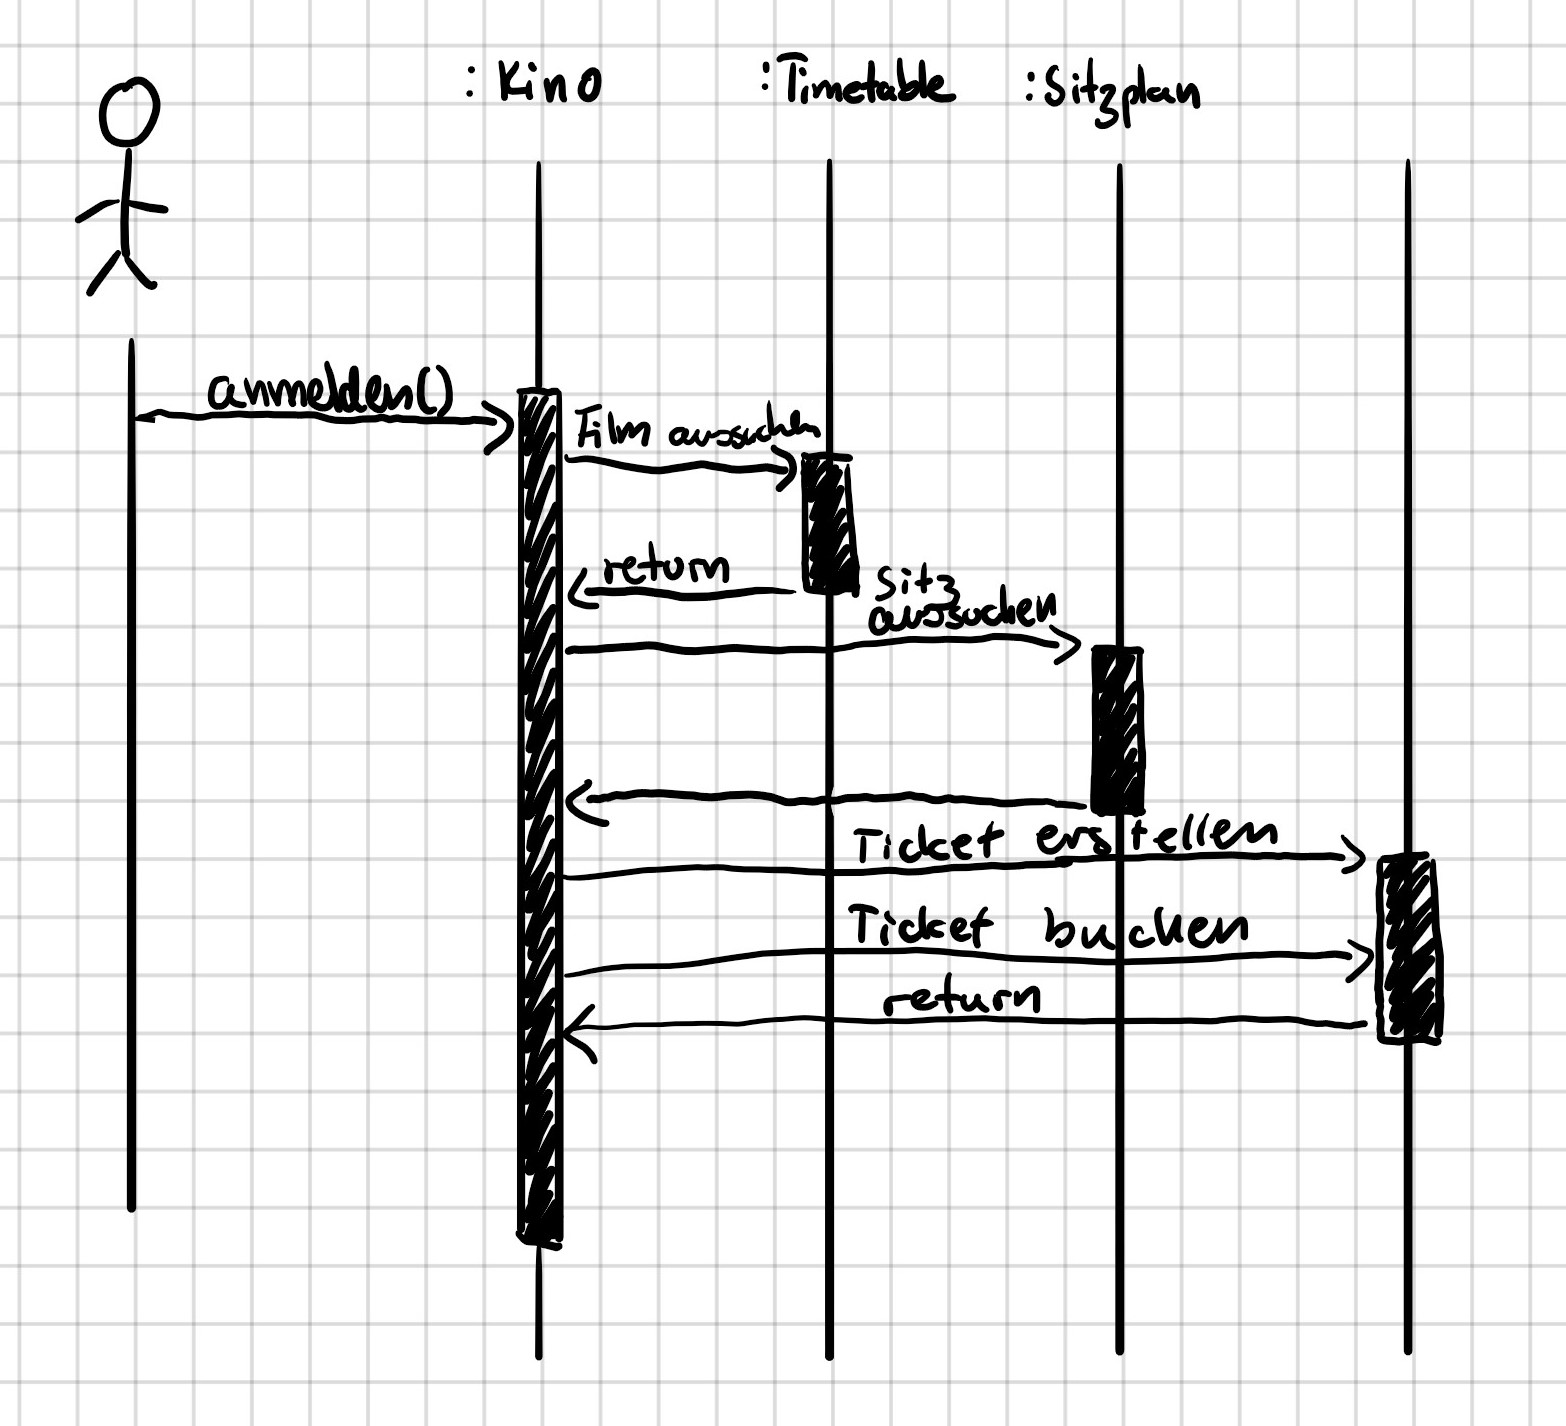 :Kino :Timetable :Sitzplan
anmelden()
Film aussuchen
return
Sitz
aussuchen
Ticket erstellen
Ticket buchen
return